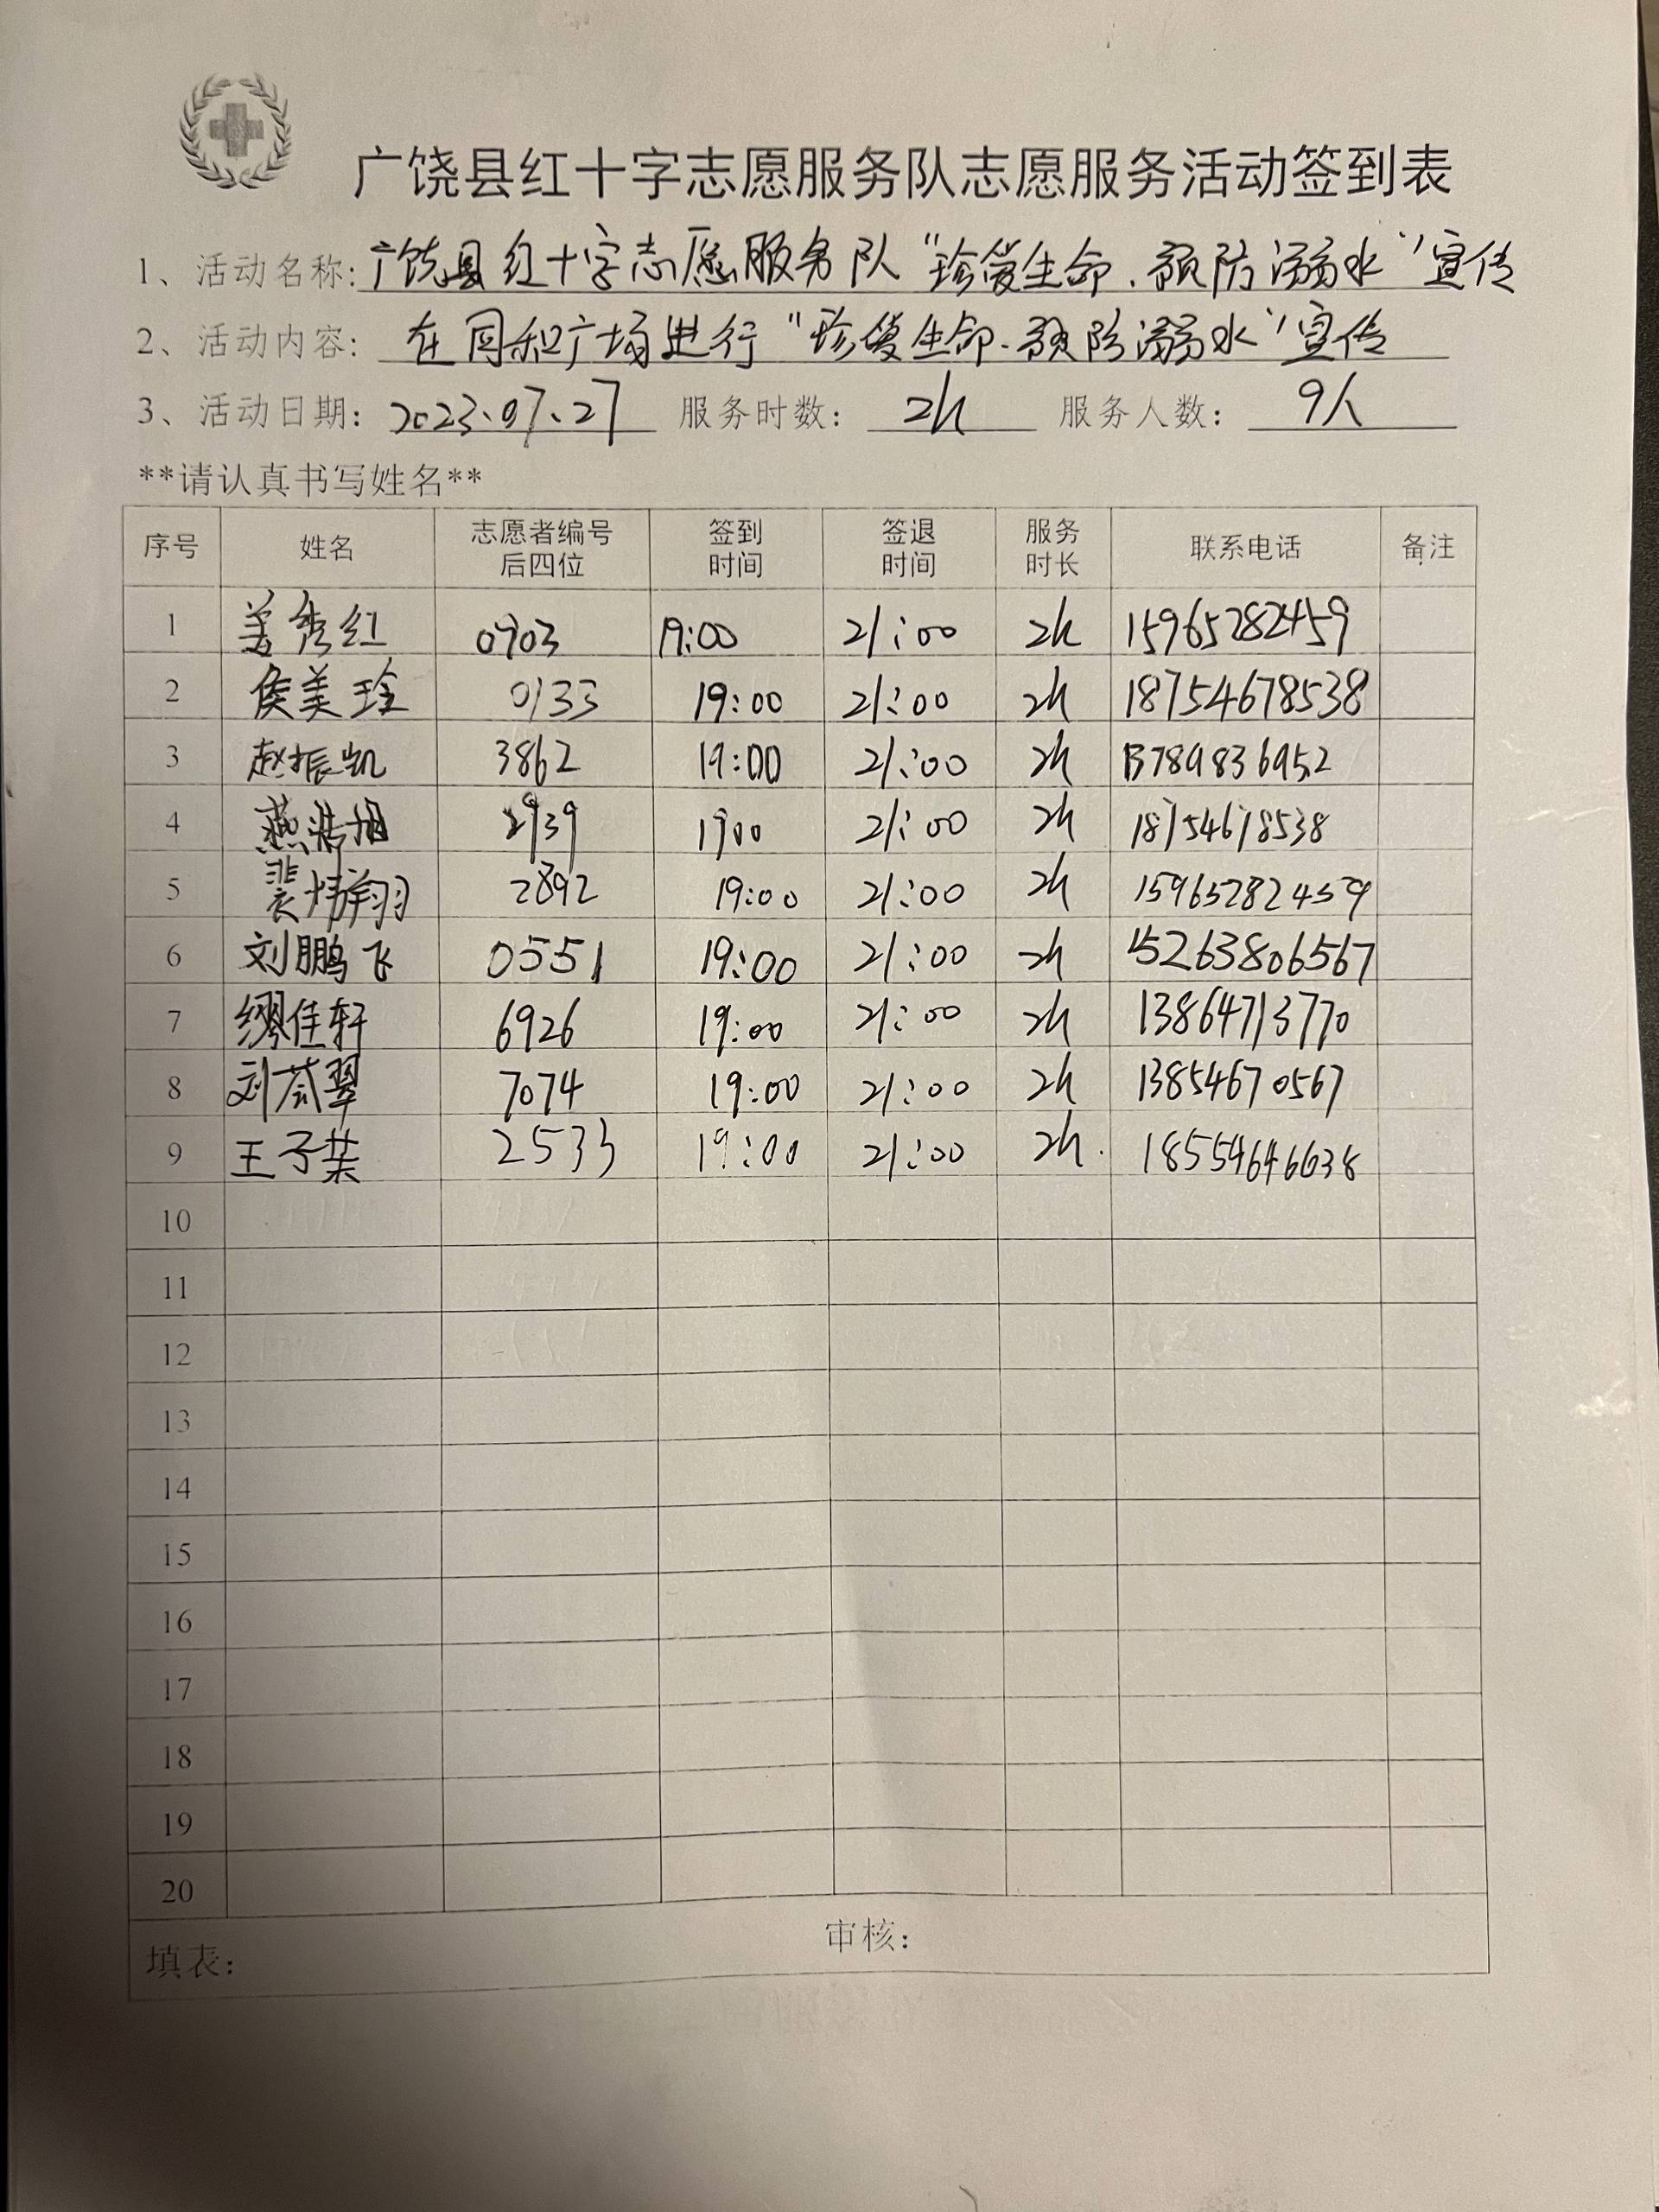 广饶县红十字志愿服务队志愿服务活动签到表
1、活动名称:广饶县红十字志愿服务队“珍爱生命.预防溺水”宣传
2、活动内容: 在同和广场进行“珍爱生命.预防溺水”宣传
3、活动日期: 2023.07.27 服务时数: 2h 服务人数: 9人
**请认真书写姓名**
序号 姓名 志愿者编号后四位 签到时间 签退时间 服务时长 联系电话 备注
1 姜秀红 0903 19:00 21:00 2h 15965282459
2 侯美玲 0133 19:00 21:00 2h 18754678538
3 赵振凯 3862 19:00 21:00 2h 13789836952
4 燕浩旭 2939 1900 21:00 2h 18754678538
5 裴炜翔 2892 19:00 21:00 2h 15965282459
6 刘鹏飞 0551 19:00 21:00 2h 15263806567
7 缪佳轩 6926 19:00 21:00 2h 13864713770
8 刘荟翠 7074 19:00 21:00 2h 13854670567
9 王子 2533 19:00 21:00 2h. 18554646638
10
11
12
13
14
15
16
17
18
19
20
填表: 审核: